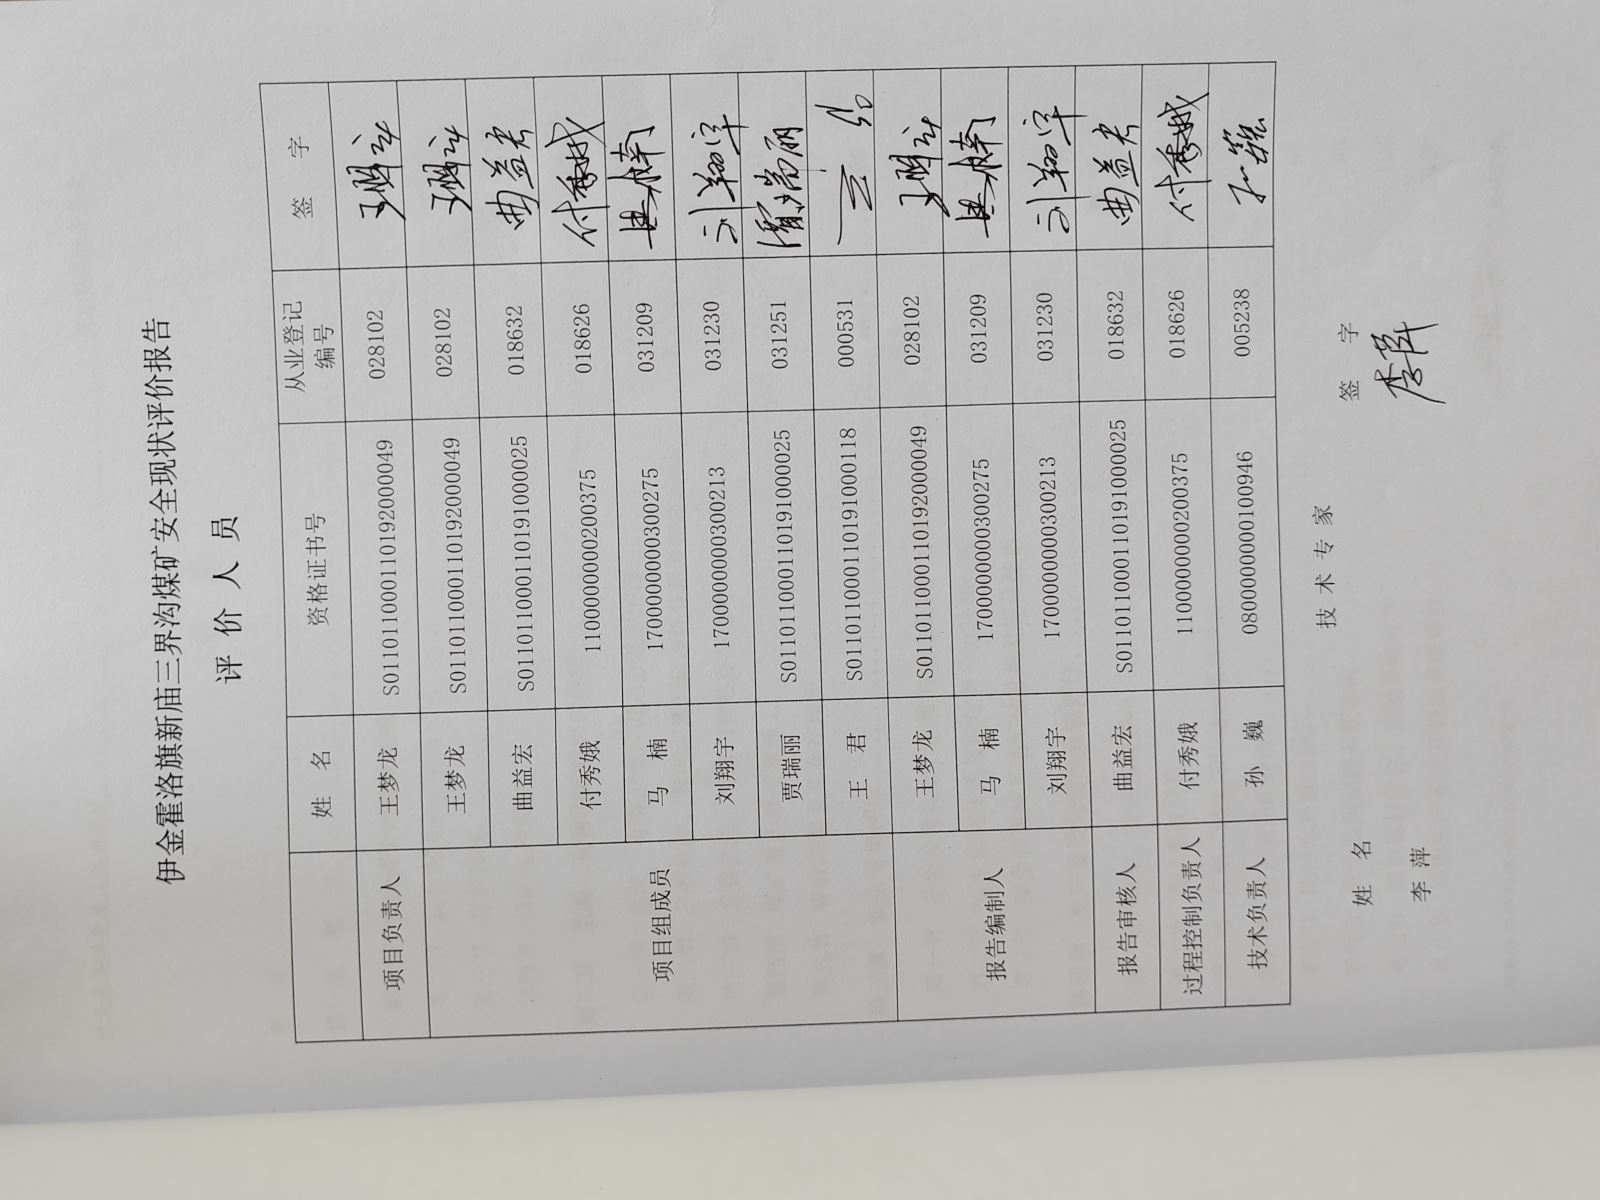 伊金霍洛旗新庙三界沟煤矿安全现状评价报告
评 价 人 员
姓 名 资格证书号 从业登记编号 签 字
项目负责人 王梦龙 S011011000110192000049 028102 王梦龙
项目组成员 王梦龙 S011011000110192000049 028102 王梦龙
曲益宏 S011011000110191000025 018632 曲益宏
付秀娥 1100000000200375 018626 付秀娥
马 楠 1700000000300275 031209 马楠
刘翔宇 1700000000300213 031230 刘翔宇
贾瑞丽 S011011000110191000025 031251 贾瑞丽
王 君 S011011000110191000118 000531
报告编制人 王梦龙 S011011000110192000049 028102 王梦龙
马 楠 1700000000300275 031209 马楠
刘翔宇 1700000000300213 031230 刘翔宇
报告审核人 曲益宏 S011011000110191000025 018632 曲益宏
过程控制负责人 付秀娥 1100000000200375 018626 付秀娥
技术负责人 孙 巍 0800000000100946 005238 孙巍
技 术 专 家
姓 名 签 字
李 萍 李萍